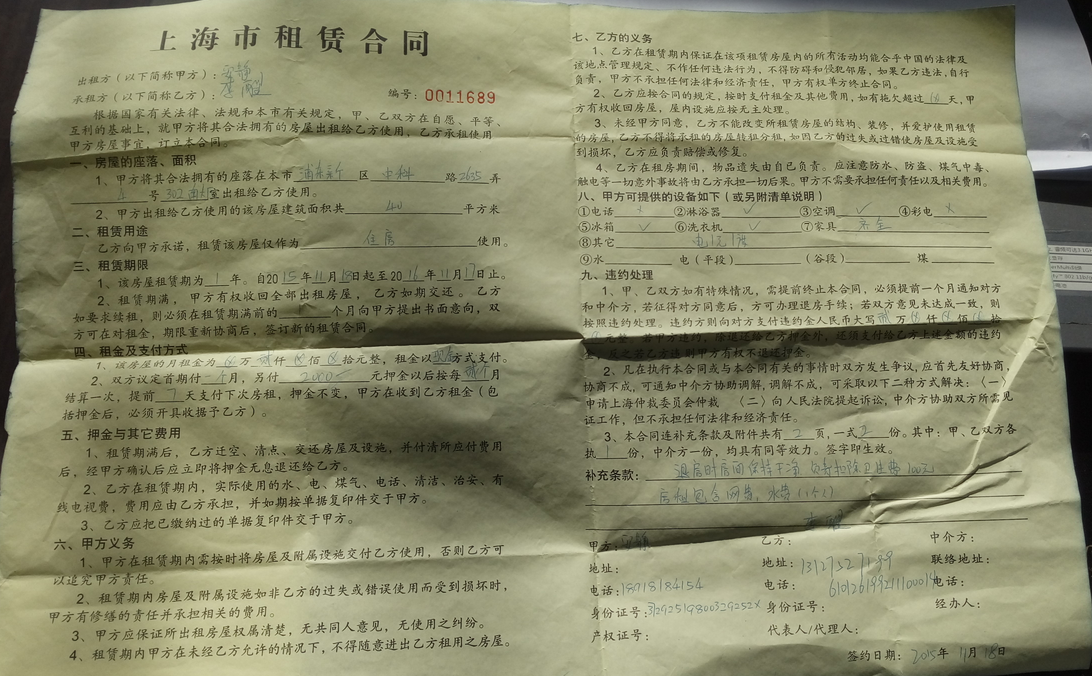 上海市租赁合同
出租方(以下简称甲方):
承租方(以下简称乙方):
编号:0011689
根据国家有关法律、法规和本市有关规定,甲、乙双方在自愿、平等、
互利的基础上,就甲方将其合法拥有的房屋出租给乙方使用,乙方承租使用
甲方房屋事宜,订立本合同。
一、房屋的座落、面积
1、甲方将其合法拥有的座落在本市 浦东新 区 中科 路 2635 弄
号 302 室出租给乙方使用。
2、甲方出租给乙方使用的该房屋建筑面积共 40 平方米
二、租赁用途
乙方向甲方承诺,租赁该房屋仅作为 住房 使用。
三、租赁期限
1、该房屋租赁期为 1 年。自2015年11月18日起至2016年11月17日止。
2、租赁期满,甲方有权收回全部出租房屋,乙方如期交还。乙方
如要求续租,则必须在租赁期满前的 个月向甲方提出书面意向,双
方可在对租金,期限重新协商后,签订新的租赁合同。
四、租金及支付方式
1、该房屋的月租金为 万 贰仟 佰 拾元整,租金以现金方式支付。
2、双方议定首期付一个月,另付 2000 元押金以后按每 月
结算一次,提前 7 天支付下次房租,押金不变,甲方在收到乙方租金(包
括押金后,必须开具收据予乙方)。
五、押金与其它费用
1、租赁期满后,乙方迁空、清点、交还房屋及设施,并付清所应付费用
后,经甲方确认后应立即将押金无息退还给乙方。
2、乙方在租赁期内,实际使用的水、电、煤气、电话、清洁、治安、有
线电视费,费用应由乙方承担,并如期按单据复印件交于甲方。
3、乙方应把已缴纳过的单据复印件交于甲方。
六、甲方义务
1、甲方在租赁期内需按时将房屋及附属设施交付乙方使用,否则乙方可
以追究甲方责任。
2、租赁期内房屋及附属设施如非乙方的过失或错误使用而受到损坏时,
甲方有修缮的责任并承担相关的费用。
3、甲方应保证所出租房屋权属清楚,无共同人意见,无使用之纠纷。
4、租赁期内甲方在未经乙方允许的情况下,不得随意进出乙方租用之房屋。
七、乙方的义务
1、乙方在租赁期内保证在该项租赁房屋内的所有活动均能合乎中国的法律及
该地点管理规定、不作任何违法行为,不得防碍和侵犯邻居,如果乙方违法,自行
负责,甲方不承担任何法律和经济责任,甲方有权单方终止合同。
2、乙方应按合同的规定,按时支付租金及其他费用,如有拖欠超过 10 天,甲
方有权收回房屋,屋内设施应按无主处理。
3、未经甲方同意,乙方不能改变所租赁房屋的结构、装修,并爱护使用租赁
的房屋,乙方不得将承租的房屋转租分租,如因乙方的过失或过错使房屋及设施受
到损坏,乙方应负责赔偿或修复。
4、乙方在租房期间,物品遗失由自已负责。应注意防水、防盗、煤气中毒、
触电等一切意外事故将由乙方承担一切后果。甲方不需要承担任何责任以及相关费用。
八、甲方可提供的设备如下(或另附清单说明)
①电话 × ②淋浴器 ✓ ③空调 ✓ ④彩电 ×
⑤冰箱 ✓ ⑥洗衣机 ✓ ⑦家具 齐全
⑧其它 电1元1度
⑨水 电(平段) (谷段) 煤
九、违约处理
1、甲、乙双方如有特殊情况,需提前终止本合同,必须提前一个月通知对方
和中介方,若征得对方同意后,方可办理退房手续;若双方意见未达成一致,则
按照违约处理。违约方则向对方支付违约金人民币大写 万 仟 佰 拾
元整。若甲方违约,除退还给乙方押金外,还须支付给乙方上述金额的违约
金,反之若乙方违则甲方有权不退还押金。
2、凡在执行本合同或与本合同有关的事情时双方发生争议,应首先友好协商,
协商不成,可通知中介方协助调解,调解不成,可采取以下二种方式解决:〈一〉
申请上海仲裁委员会仲裁 〈二〉向人民法院提起诉讼,中介方协助双方所需见
证工作,但不承担任何法律和经济责任。
3、本合同连补充条款及附件共有 2 页,一式 2 份。其中:甲、乙双方各
执 1 份,中介方一份,均具有同等效力。签字即生效。
补充条款: 退房时房间保持干净 扣除卫生费100元
房租包含网费,水费
甲方: 乙方: 中介方:
地址: 地址:13127527199 联络地址:
电话:18918184154 电话: 电话:
身份证号: 身份证号: 经办人:
产权证号: 代表人/代理人:
签约日期:2015年 11月 18日